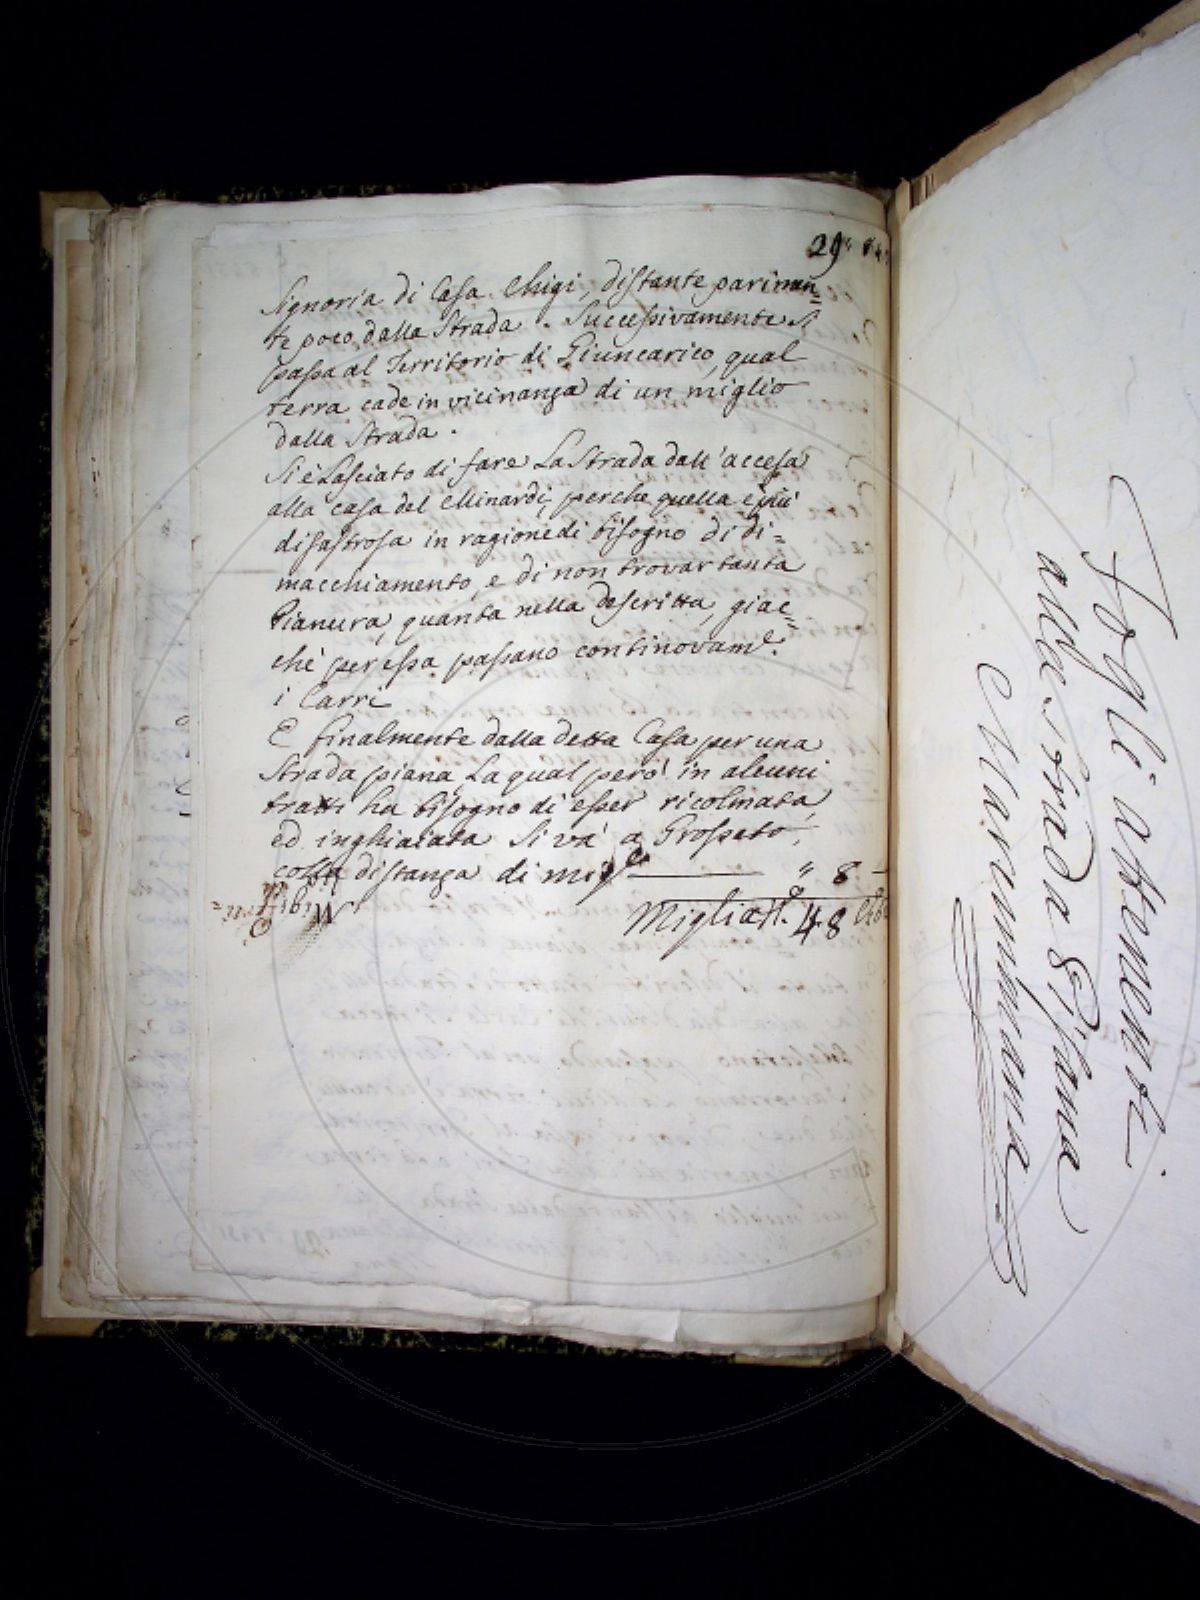 29
Signoria di Casa Chigi, distante pariman=
te poco dalla Strada. Successivamente si
passa al Territorio di Giuncarico, qual
terra cade in vicinanza di un miglio
dalla Strada.
Si è Lasciato di fare La Strada dall'accesa
alla casa del Minardi, perche quella è più
disastrosa in ragione di bisogno di di=
macchiamento, e di non trovar tanta
Pianura, quanta nella descritta, giac=
chè per essa passano continovam.e
i Carri
E finalmente dalla detta Casa per una
Strada piana, La qual però in alcuni
tratti ha bisogno di esser ricolmata,
ed inghiaiata si và a Grosseto,
colla distanza di mig.e " 8 -
Miglia 48
Fogli attenenti
alla strada Pisana
Maremmana